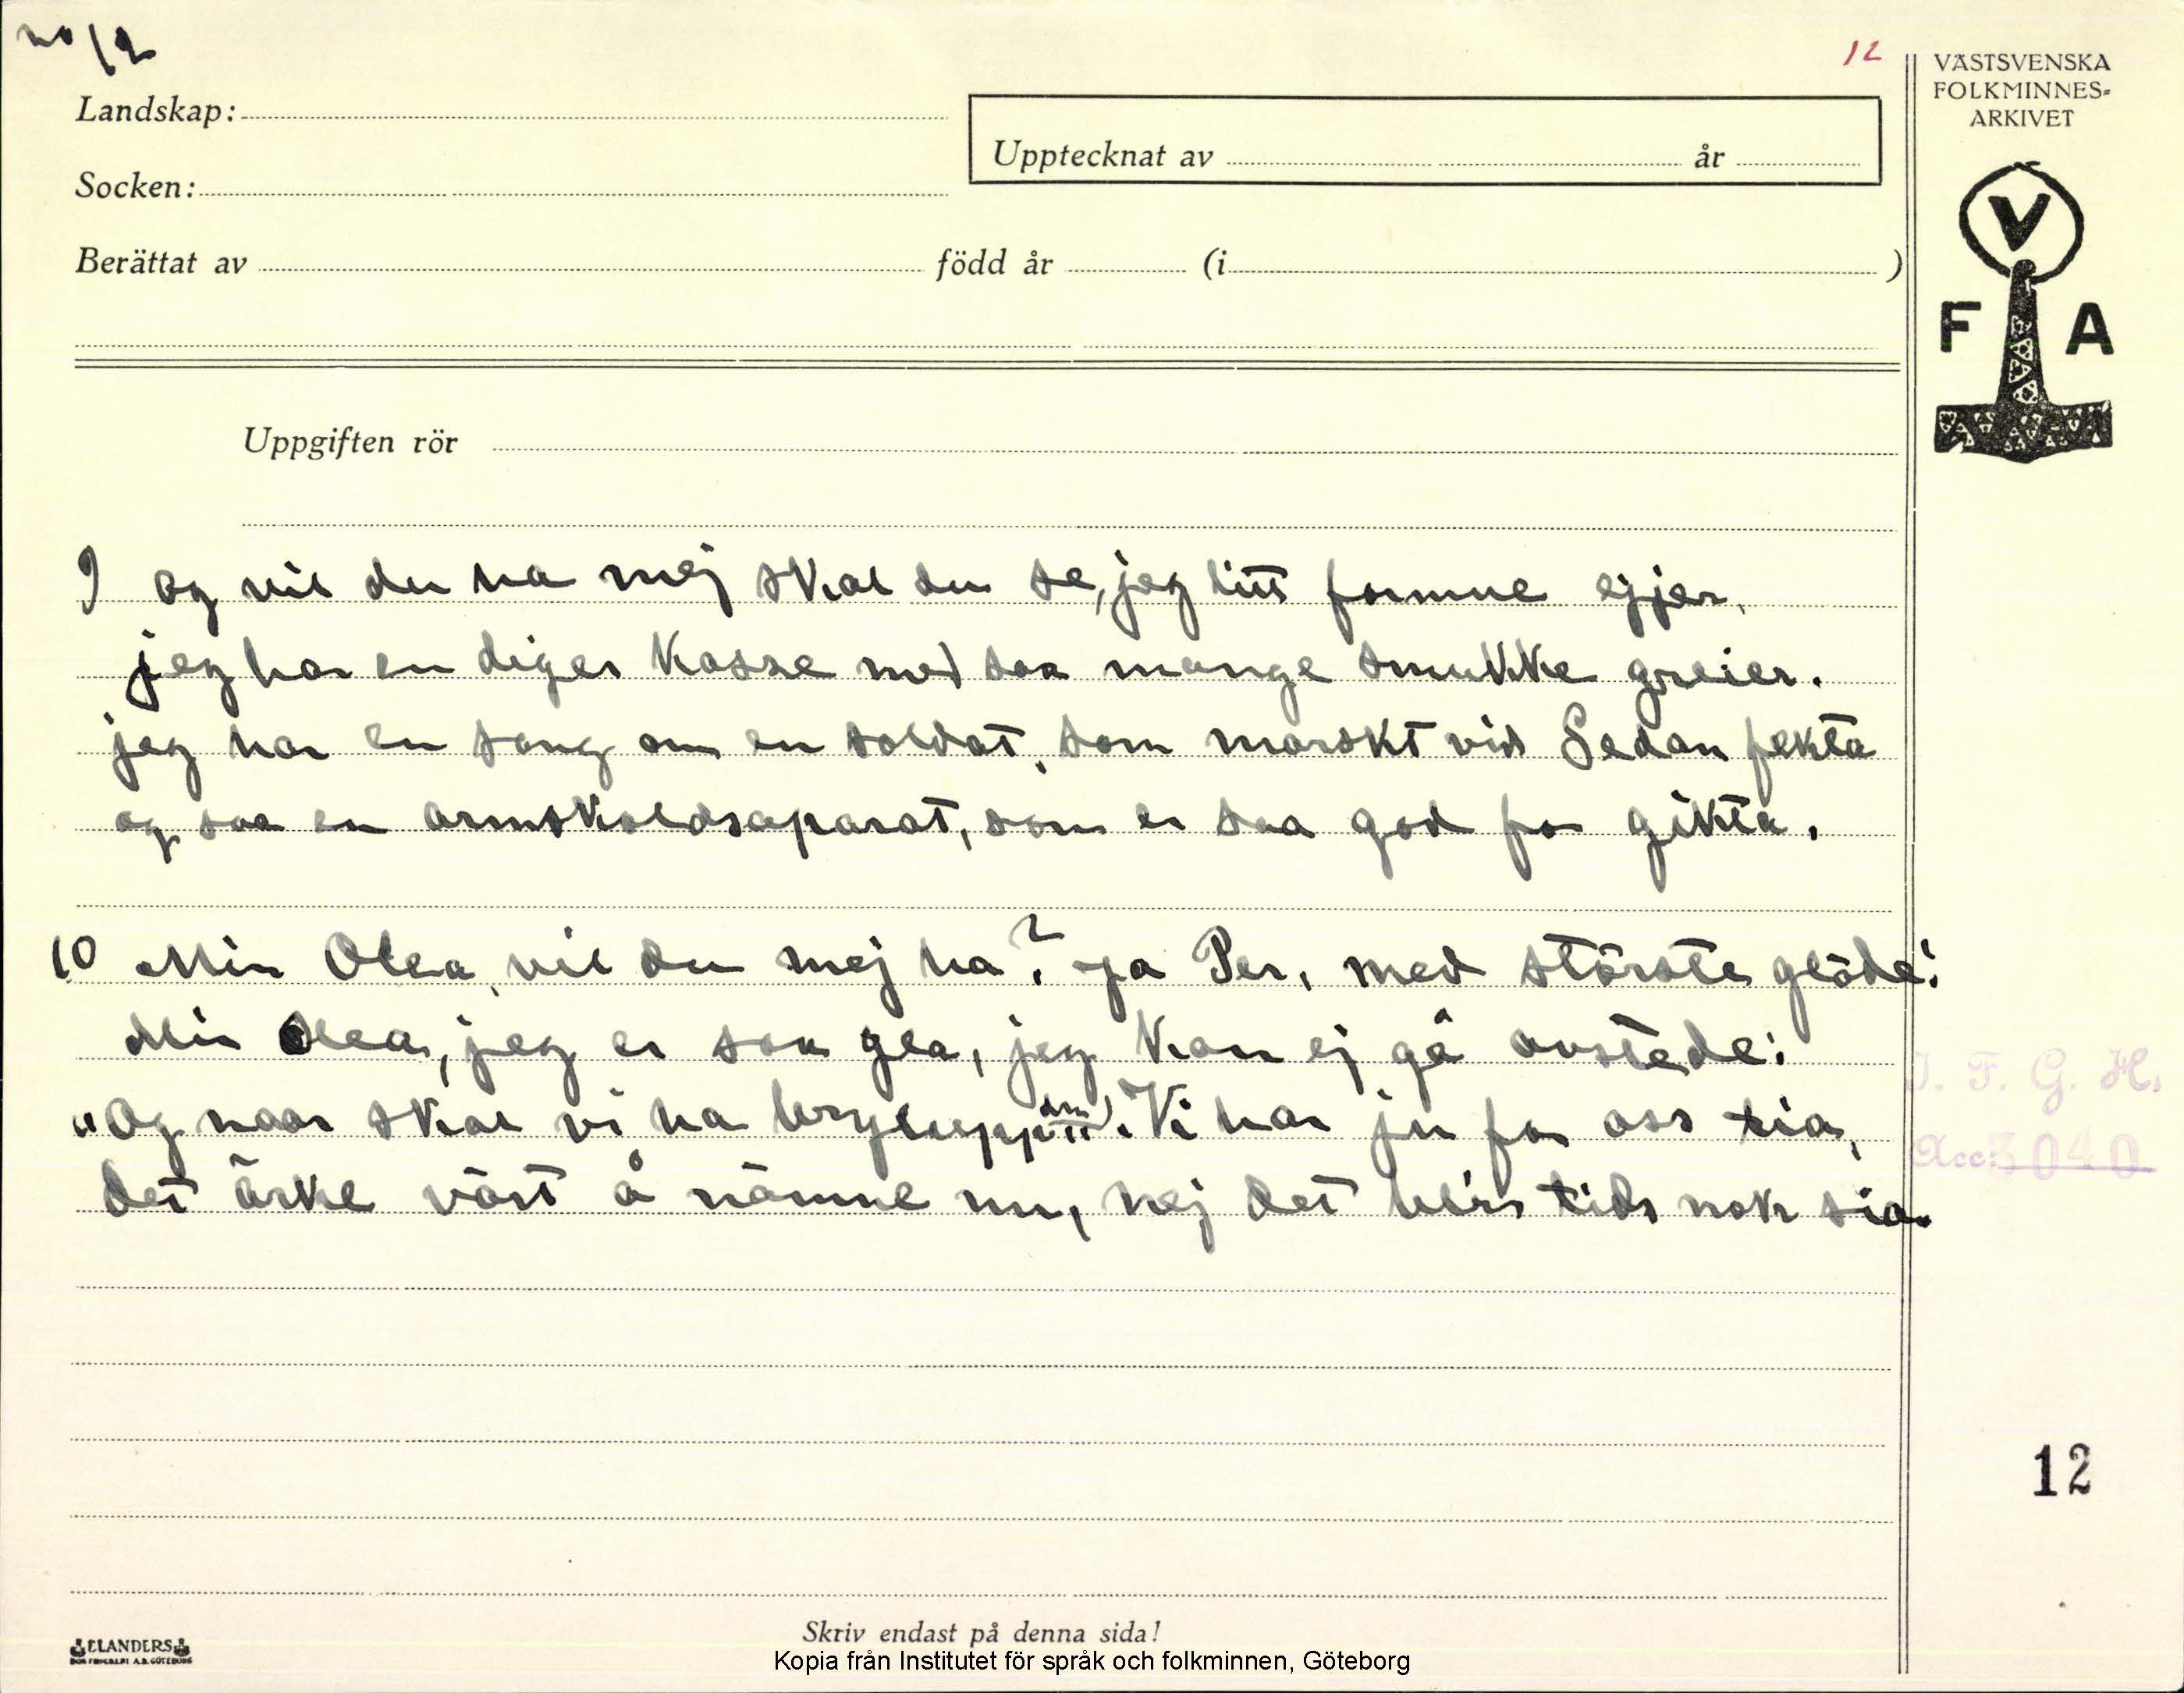 no 12
12
VÄSTSVENSKA
FOLKMINNES-
ARKIVET
Landskap:
Upptecknat av år
Socken:
Berättat av född år (i )
V
F A
Uppgiften rör
9 og vil du ha mej skal du se, jeg litt formue ejjer.
jeg har en diger kasse med saa mange smukke greier.
jeg har en sang om en soldat, som morskt vid Sedan fekta
og saa en armskoldsaparat, som er saa god for gikta.
10 Min Olea, vil du mej ha? Ja Per, med störste glöde!
Min Olea, jeg er saa gla, jeg kan ej gå avstede:
"Og naar skal vi ha bryllupp". Vi har ju for oss tia,
det ärke värt å nämne nu, nej det blirs tids nok sia.
I. F. G. H.
Acc: 3040
12
ELANDERS
BOKTRYCKERI A.B. GÖTEBORG
Skriv endast på denna sida!
Kopia från Institutet för språk och folkminnen, Göteborg